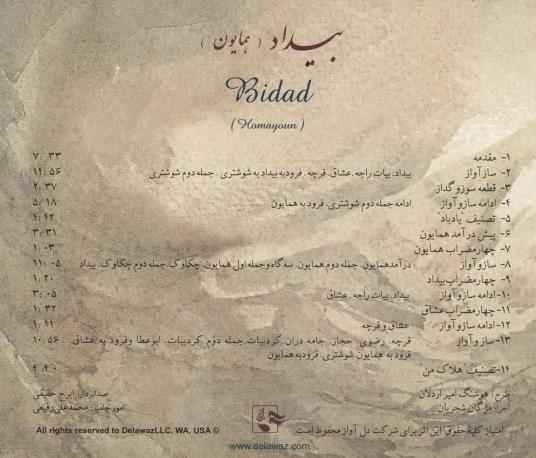 بیداد ( همایون )
Bidad
( Homayoun )
۱- مقدمه ۷: ۳۳
۲- ساز آواز بیداد، بیات راجه، عشاق، قرچه، فرود به بیداد به شوشتری، جمله دوم شوشتری ۱۴: ۵۶
۳- قطعه سوز و گداز ۲: ۳۷
۴- ادامه ساز و آواز ادامه جمله دوم شوشتری، فرود به همایون ۵: ۱۸
۵- تصنیف "یاد باد" ۴: ۴۲
۶- پیش درآمد همایون ۳: ۳۱
۷- چهارمضراب همایون ۱: ۰۳
۸- ساز و آواز درآمد همایون، جمله دوم همایون، سه گاه و جمله اول همایون، چکاوک، جمله دوم چکاوک، بیداد ۱۱: ۰۵
۹- چهارمضراب بیداد ۱: ۲۰
۱۰- ادامه ساز و آواز بیداد، بیات راجه، عشاق ۳: ۰۵
۱۱- چهارمضراب عشاق ۱: ۳۲
۱۲- ادامه ساز و آواز عشاق و قرچه ۱: ۱۱
۱۳- ساز و آواز قرچه، رضوی، حجاز، جامه دران، کردبیات، جمله دوم کردبیات، ابوعطا و فرود به عشاق، ۱۰: ۵۶
قرچه، فرود به همایون، شوشتری، فرود به همایون
۱۴- تصنیف "هلاک من" ۴: ۴۰
طرح: هوشنگ امیر اردلان صدابردار: ایرج حقیقی
اجرا: مژگان شجریان امور چاپ: محمدعلی رفیعی
امتیاز کلیه حقوق این اثر برای شرکت دل آواز محفوظ است
All rights reserved to DelawazLLC. WA, USA ©
www.delawaz.com